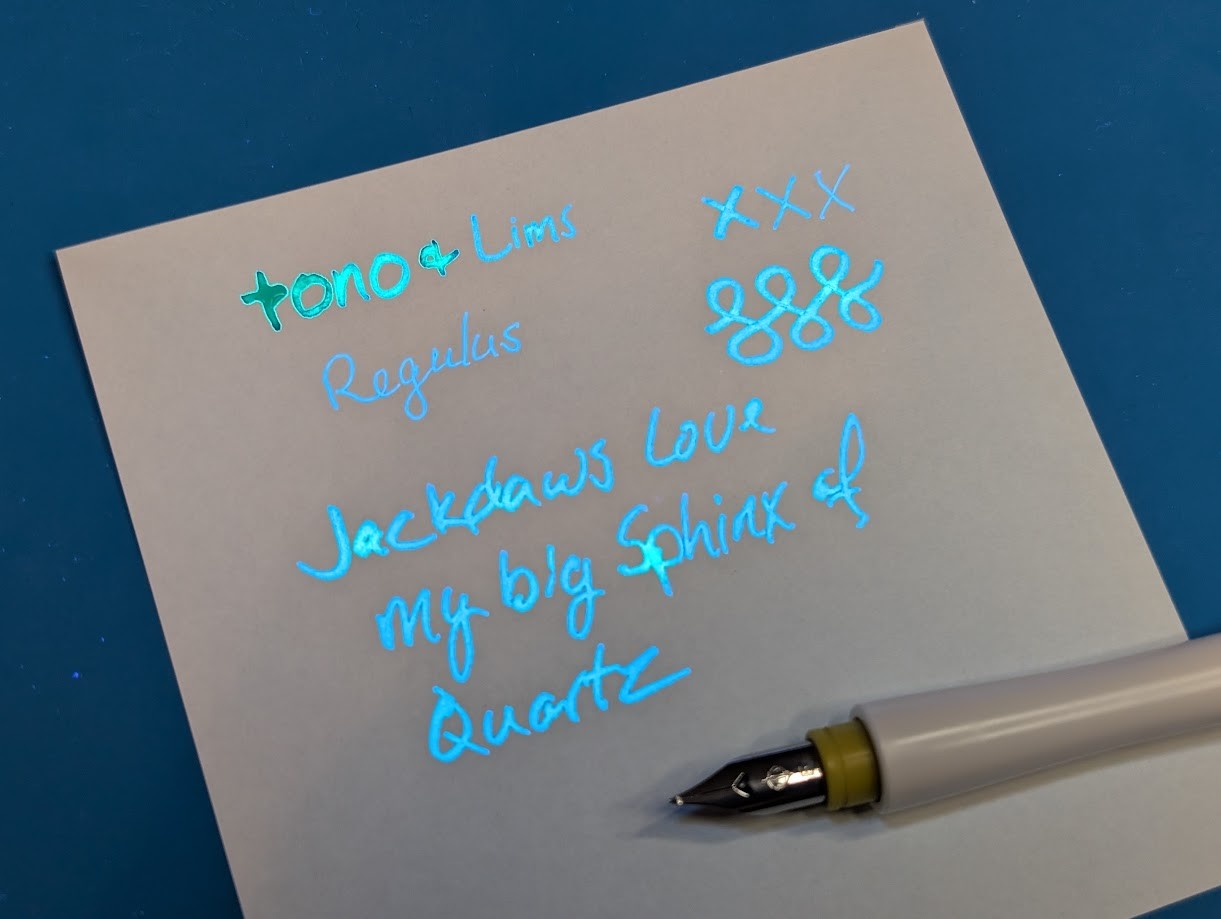 tono & Lims
Regulus
xxx
Jackdaws Love
my big Sphinx of
Quartz